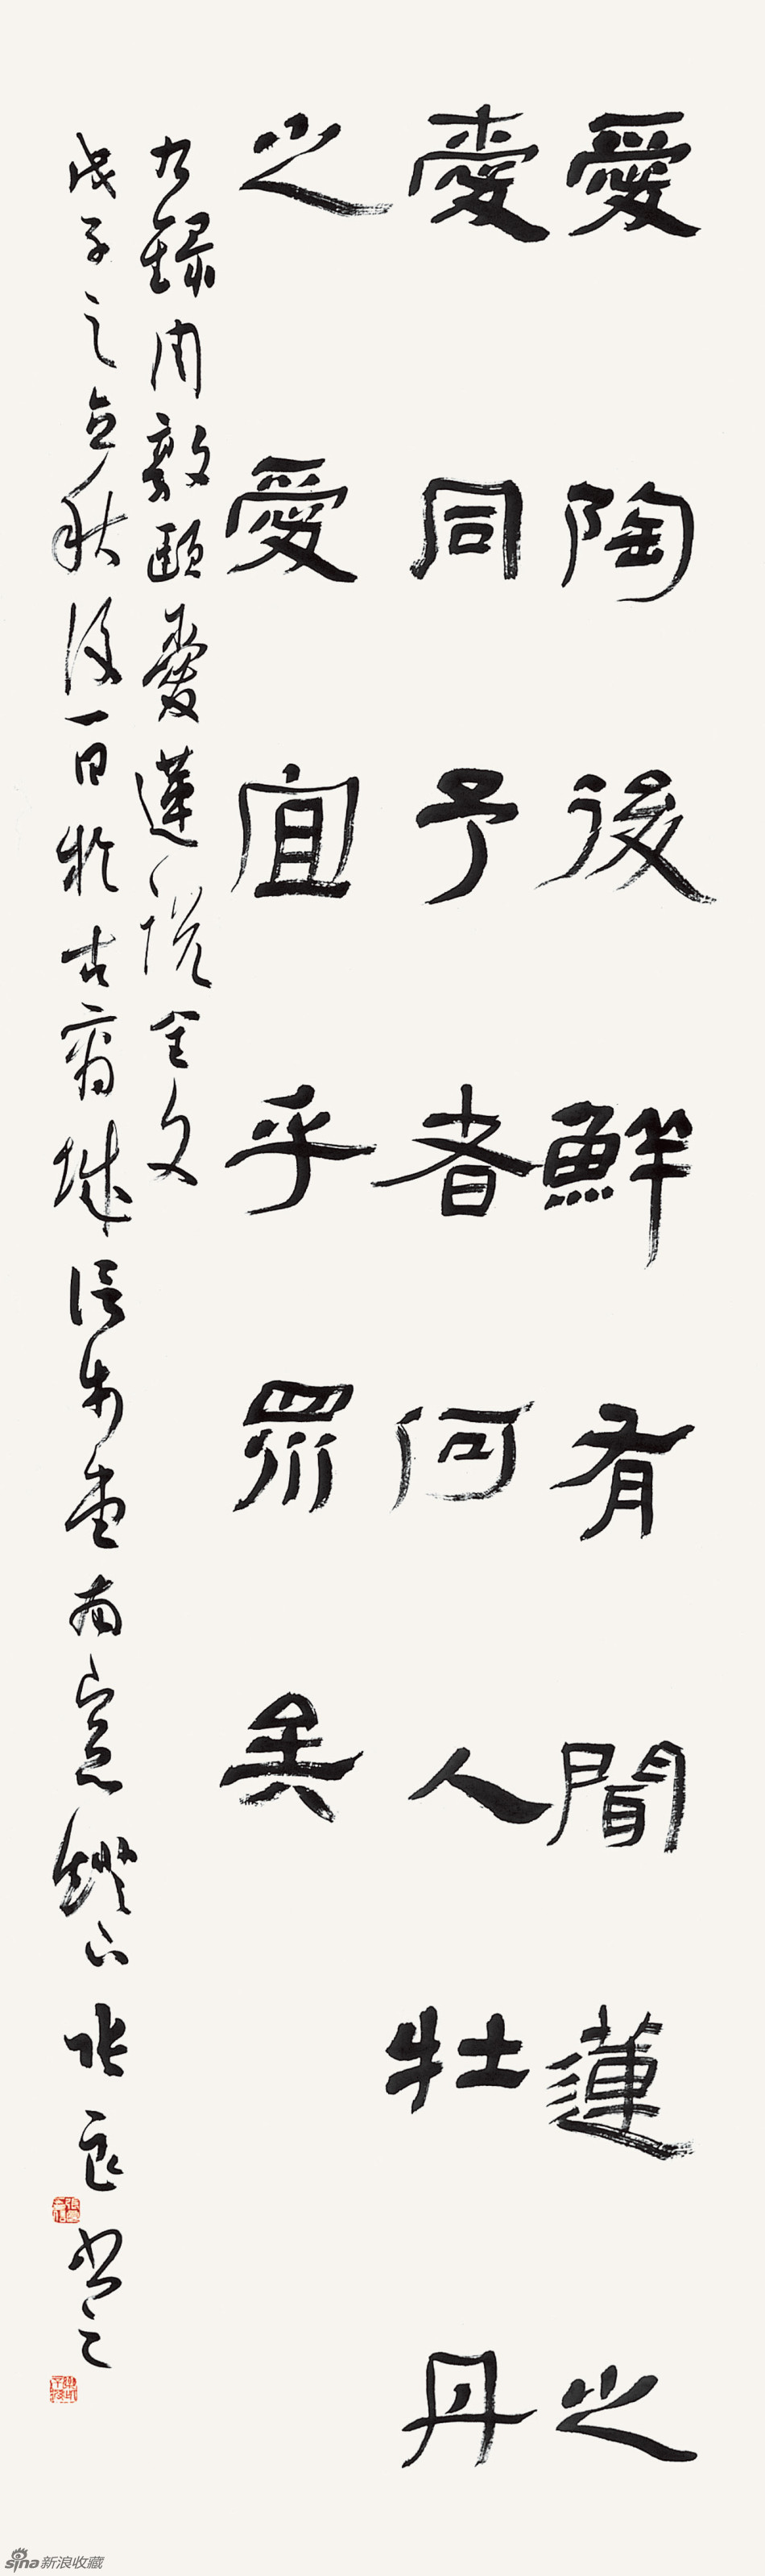 愛陶後鮮有聞蓮之
愛同予者何人牡丹
之愛宜乎眾矣
右錄周敦頤愛蓮說全文
戊子之立秋後一日於古商城信步堂南窗燈下張良書之
sina新浪收藏